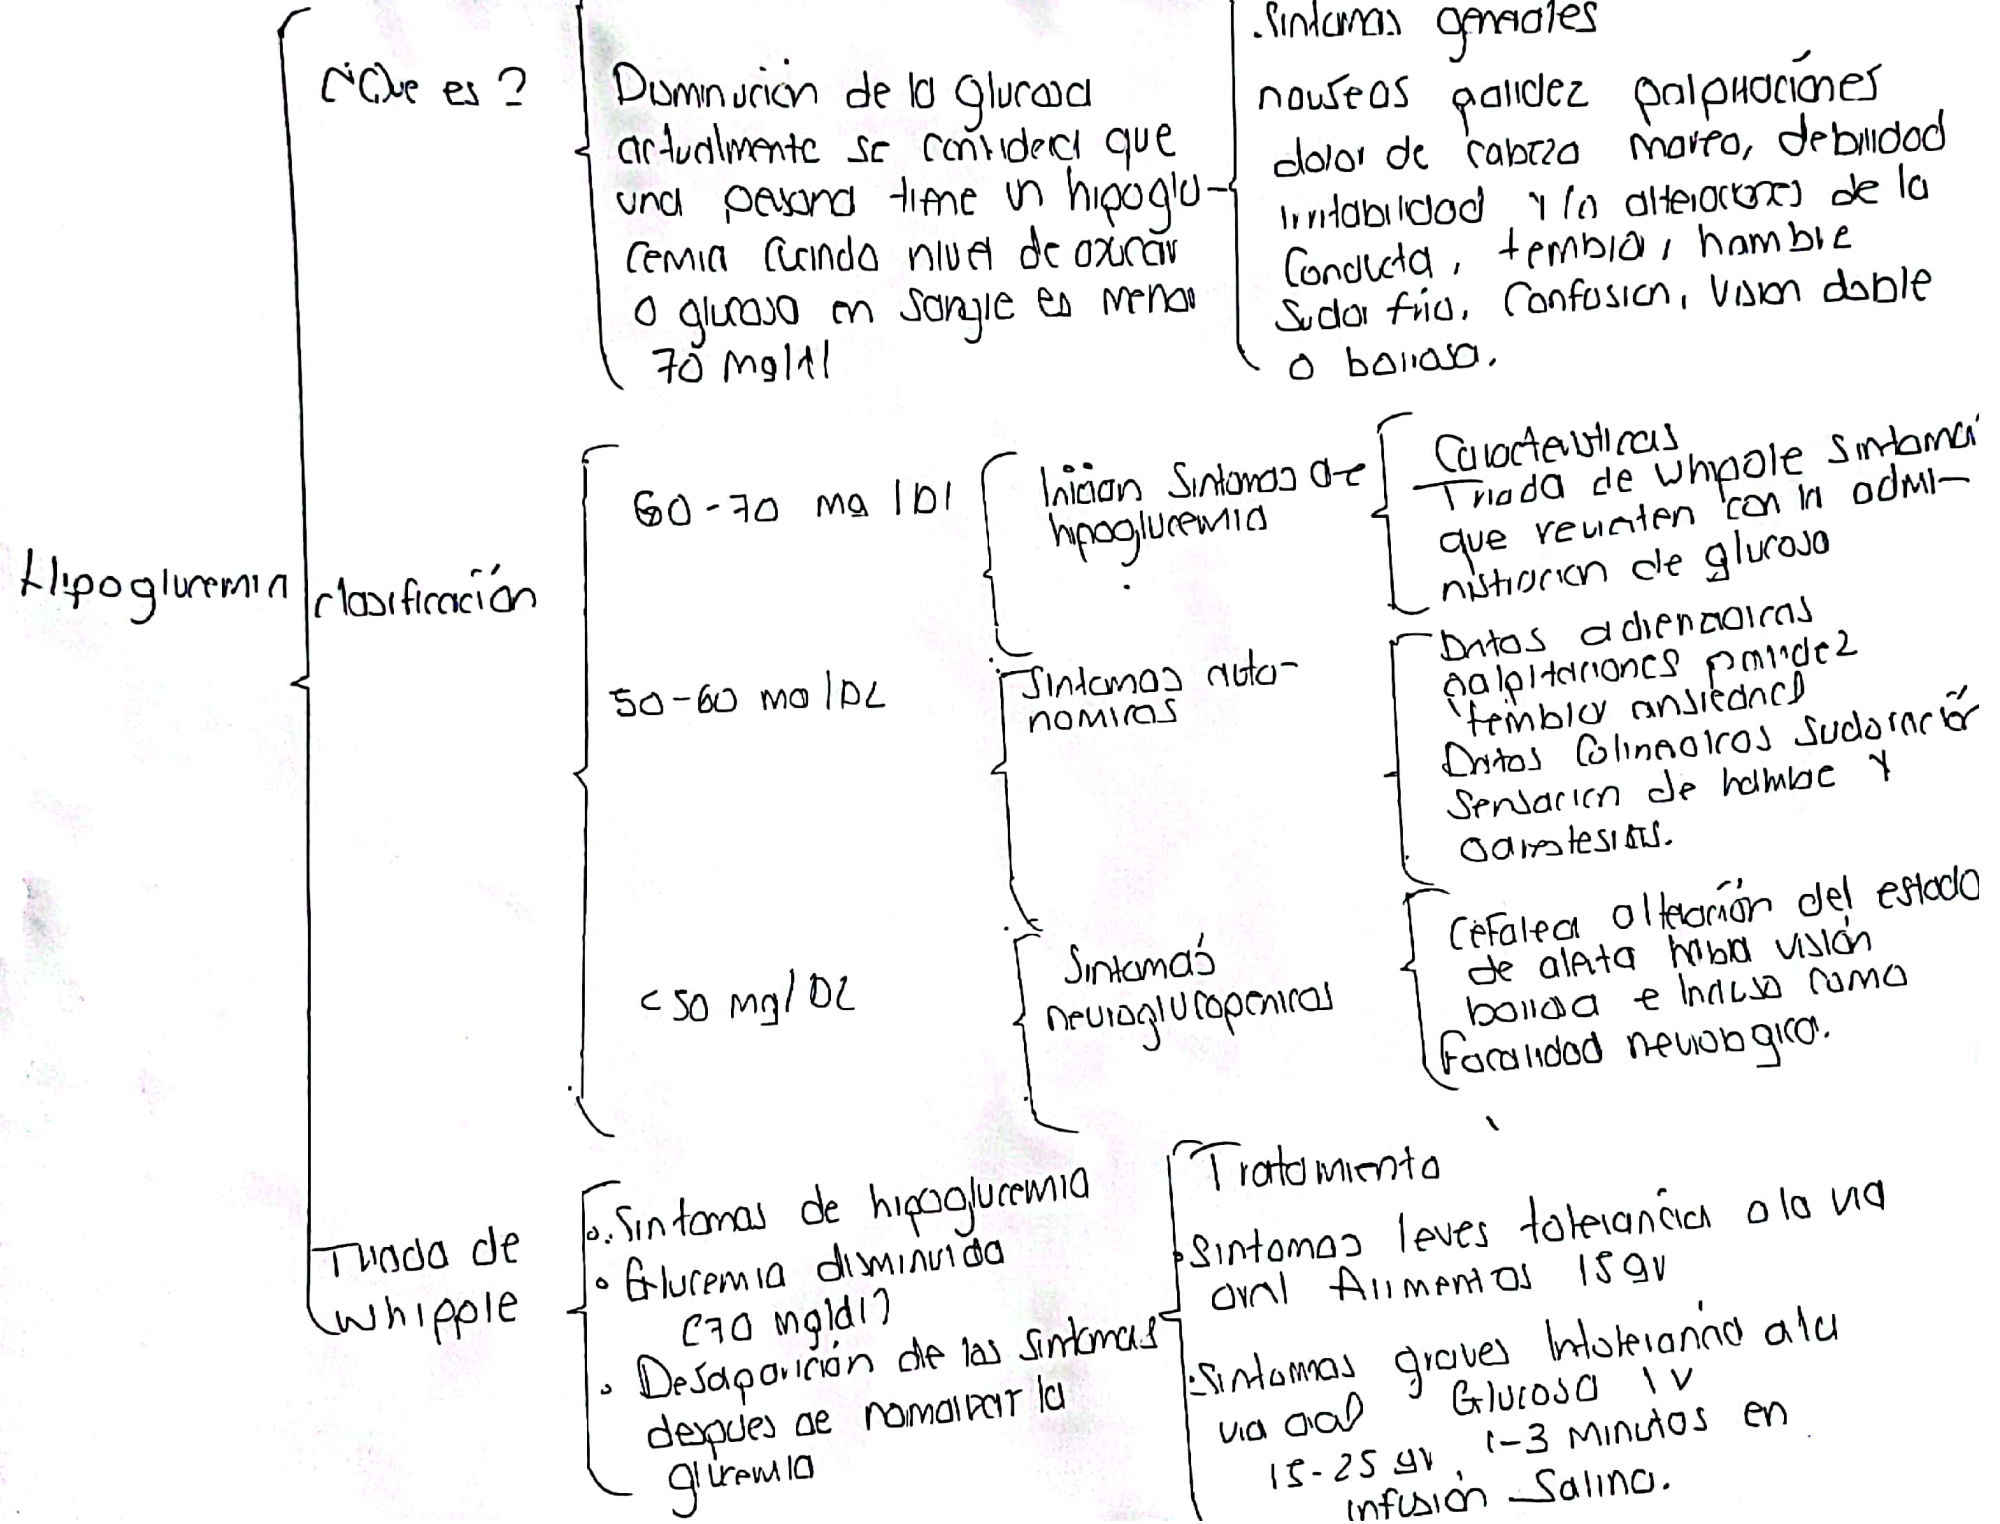 Hipoglucemia
¿Que es?
Disminución de la glucosa
actualmente se considera que
una persona tiene un hipoglu-
cemia cuando nivel de azucar
o glucosa en sangre es menor
70 mg/dl
.Sintomas generales
nauseas palidez palpitaciones
dolor de cabeza mareo, debilidad
irritabilidad y/o alteraciones de la
Conducta, temblor, hambre
Sudor frio, Confusion, Vision doble
o borrosa.
clasificación
60-70 mg/Dl
Inician Sintomas de
hipoglucemia
Caracteristicas
Triada de Whipple Sintomas
que revierten con la admi-
nistracion de glucosa
50-60 mg/DL
Sintomas auto-
nomicos
Datos adrenergicos
palpitaciones palidez
temblor ansiedad
Datos Colinergicos Sudoración
Sensacion de hambre y
parestesias.
<50 mg/DL
Sintomas
neuroglucopenicos
Cefalea alteración del estado
de alerta habla visión
borrosa e incluso coma
Focalidad neurologica.
Triada de
Whipple
. Sintomas de hipoglucemia
• Glucemia disminuida
(70 mg/dl)
• Desaparición de los sintomas
despues de normalizar la
glucemia
Tratamiento
•Sintomas leves tolerancia a la via
oral Alimentos 15 gr
•Sintomas graves Intolerancia a la
via oral Glucosa IV
15-25 gr, 1-3 Minutos en
infusión Salina.